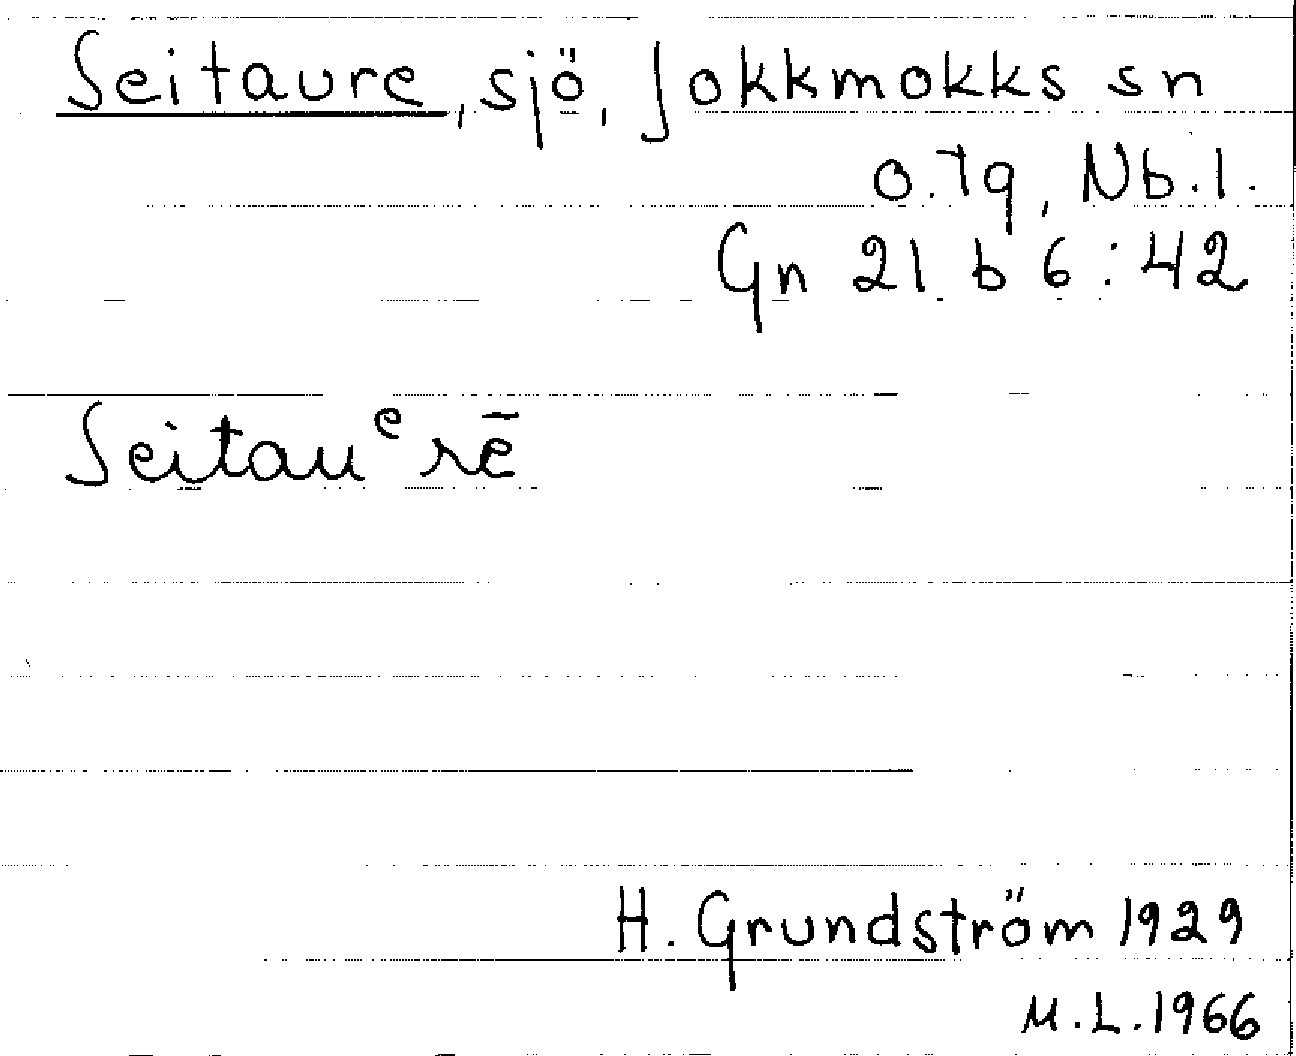 Seitaure, sjö, Jokkmokks sn
o. tg, Nb. l.
Gn 21 b 6:42
Seitauᵉrē
H. Grundström 1929
M.L. 1966